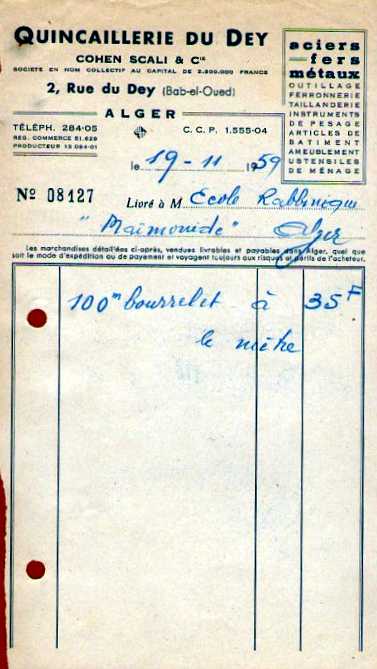 QUINCAILLERIE DU DEY
COHEN SCALI & Cie
SOCIÉTÉ EN NOM COLLECTIF AU CAPITAL DE 2.800.000 FRANCS
2, Rue du Dey (Bab-el-Oued)
ALGER
TÉLÉPH. 284-05
REG. COMMERCE 51.629
PRODUCTEUR 13.084-01
C. C. P. 1.555-04
aciers
fers
métaux
OUTILLAGE
FERRONNERIE
TAILLANDERIE
INSTRUMENTS
DE PESAGE
ARTICLES DE
BATIMENT
AMEUBLEMENT
USTENSILES
DE MÉNAGE
le 19-11 1959
No 08127 Livré à M Ecole Rabbinique
"Maïmonide" Alger
Les marchandises détaillées ci-après, vendues livrables et payables dans Alger, quel que
soit le mode d'expédition ou de payement et voyagent toujours aux risques et périls de l'acheteur.
100m bourrelet à 35F
le mètre